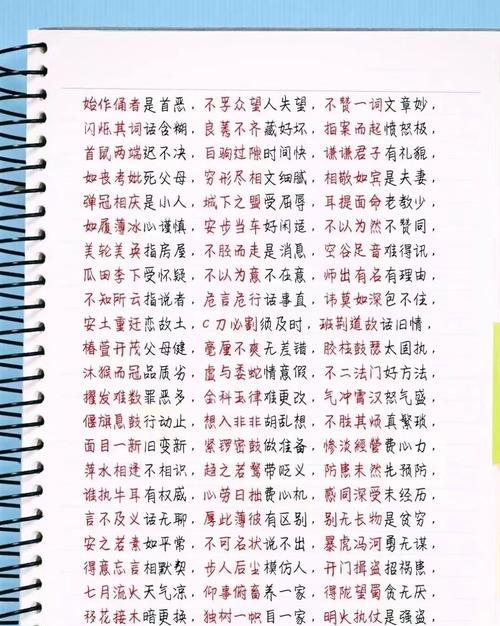 始作俑者是首恶，不孚众望人失望，不赞一词文章妙，
闪烁其词话含糊，良莠不齐藏好坏，拍案而起愤怒极，
首鼠两端迟不决，白驹过隙时间快，谦谦君子有礼貌，
如丧考妣死父母，穷形尽相文细腻，相敬如宾是夫妻，
弹冠相庆是小人，城下之盟受屈辱，耳提面命老教少，
如履薄冰心谨慎，安步当车好闲适，不以为然不赞同，
美轮美奂指房屋，不胫而走是消息，空谷足音难得讯，
瓜田李下受怀疑，不以为意不在意，师出有名有理由，
不知所云指说者，危言危行话事直，讳莫如深包不住，
安土重迁恋故土，C刀必割须及时，班荆道故话旧情，
椿萱并茂父母健，毫厘不爽无差错，胶柱鼓瑟太固执，
沐猴而冠品质劣，虚与委蛇情意假，不二法门好方法，
擢发难数罪恶多，金科玉律难更改，气冲霄汉怒气盛，
偃旗息鼓行动止，想入非非胡乱想，不胜其烦真繁琐，
面目一新旧变新，紧锣密鼓做准备，惨淡经营费心力，
萍水相逢不相识，趋之若鹜带贬义，防患未然先预防，
谁执牛耳有权威，心劳日拙费心机，感同深受未经历，
言不及义话无聊，厚此薄彼有区别，别无长物是贫穷，
安之若素如平常，不可名状说不出，暴虎冯河勇无谋，
得意忘言相默契，步人后尘模仿人，开门揖盗招祸患，
七月流火天气凉，仰事俯畜养一家，得陇望蜀贪无厌，
移花接木暗更换，独树一帜自一家，明火执仗是强盗，